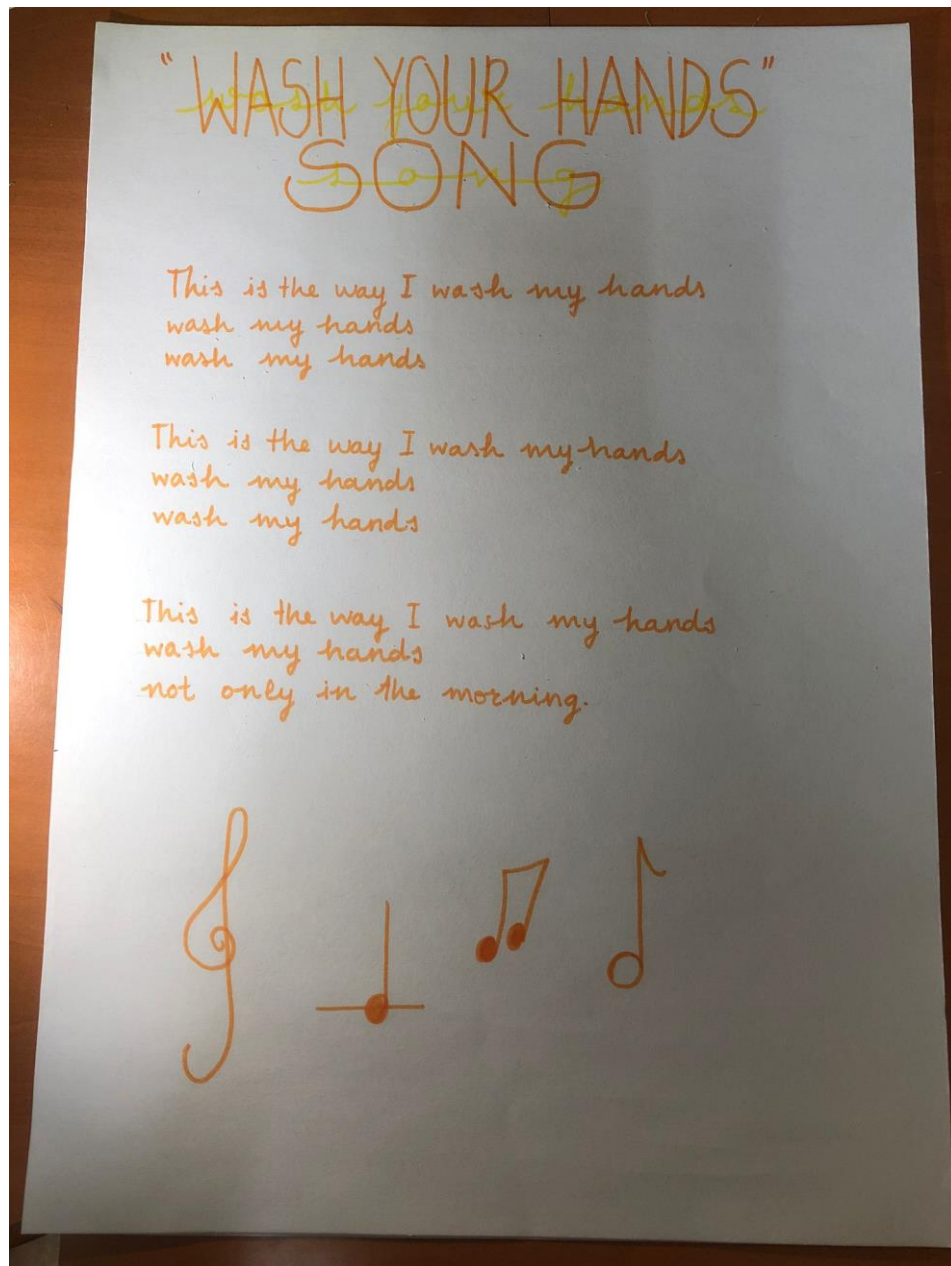 "WASH YOUR HANDS"
SONG
This is the way I wash my hands
wash my hands
wash my hands
This is the way I wash my hands
wash my hands
wash my hands
This is the way I wash my hands
wash my hands
not only in the morning.